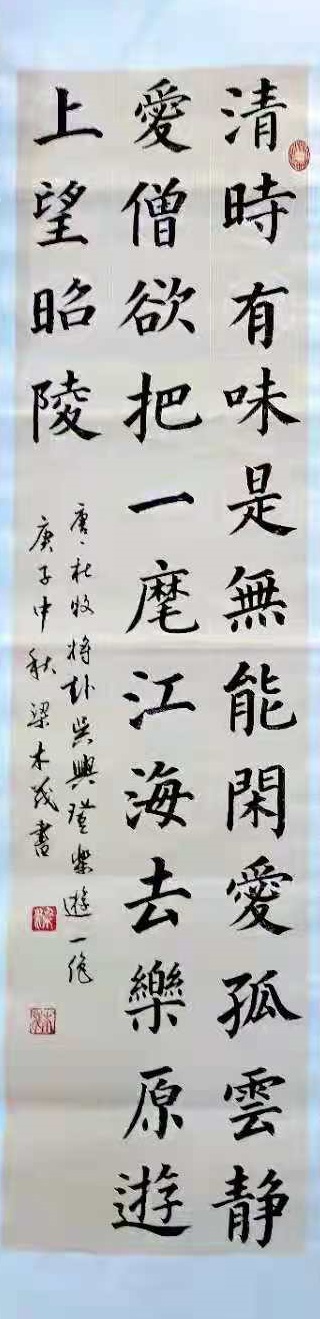 清時有味是無能閑愛孤雲靜
愛僧欲把一麾江海去樂原遊
上望昭陵
唐杜牧將赴吳興登樂遊一絕
庚子中秋梁木茂書